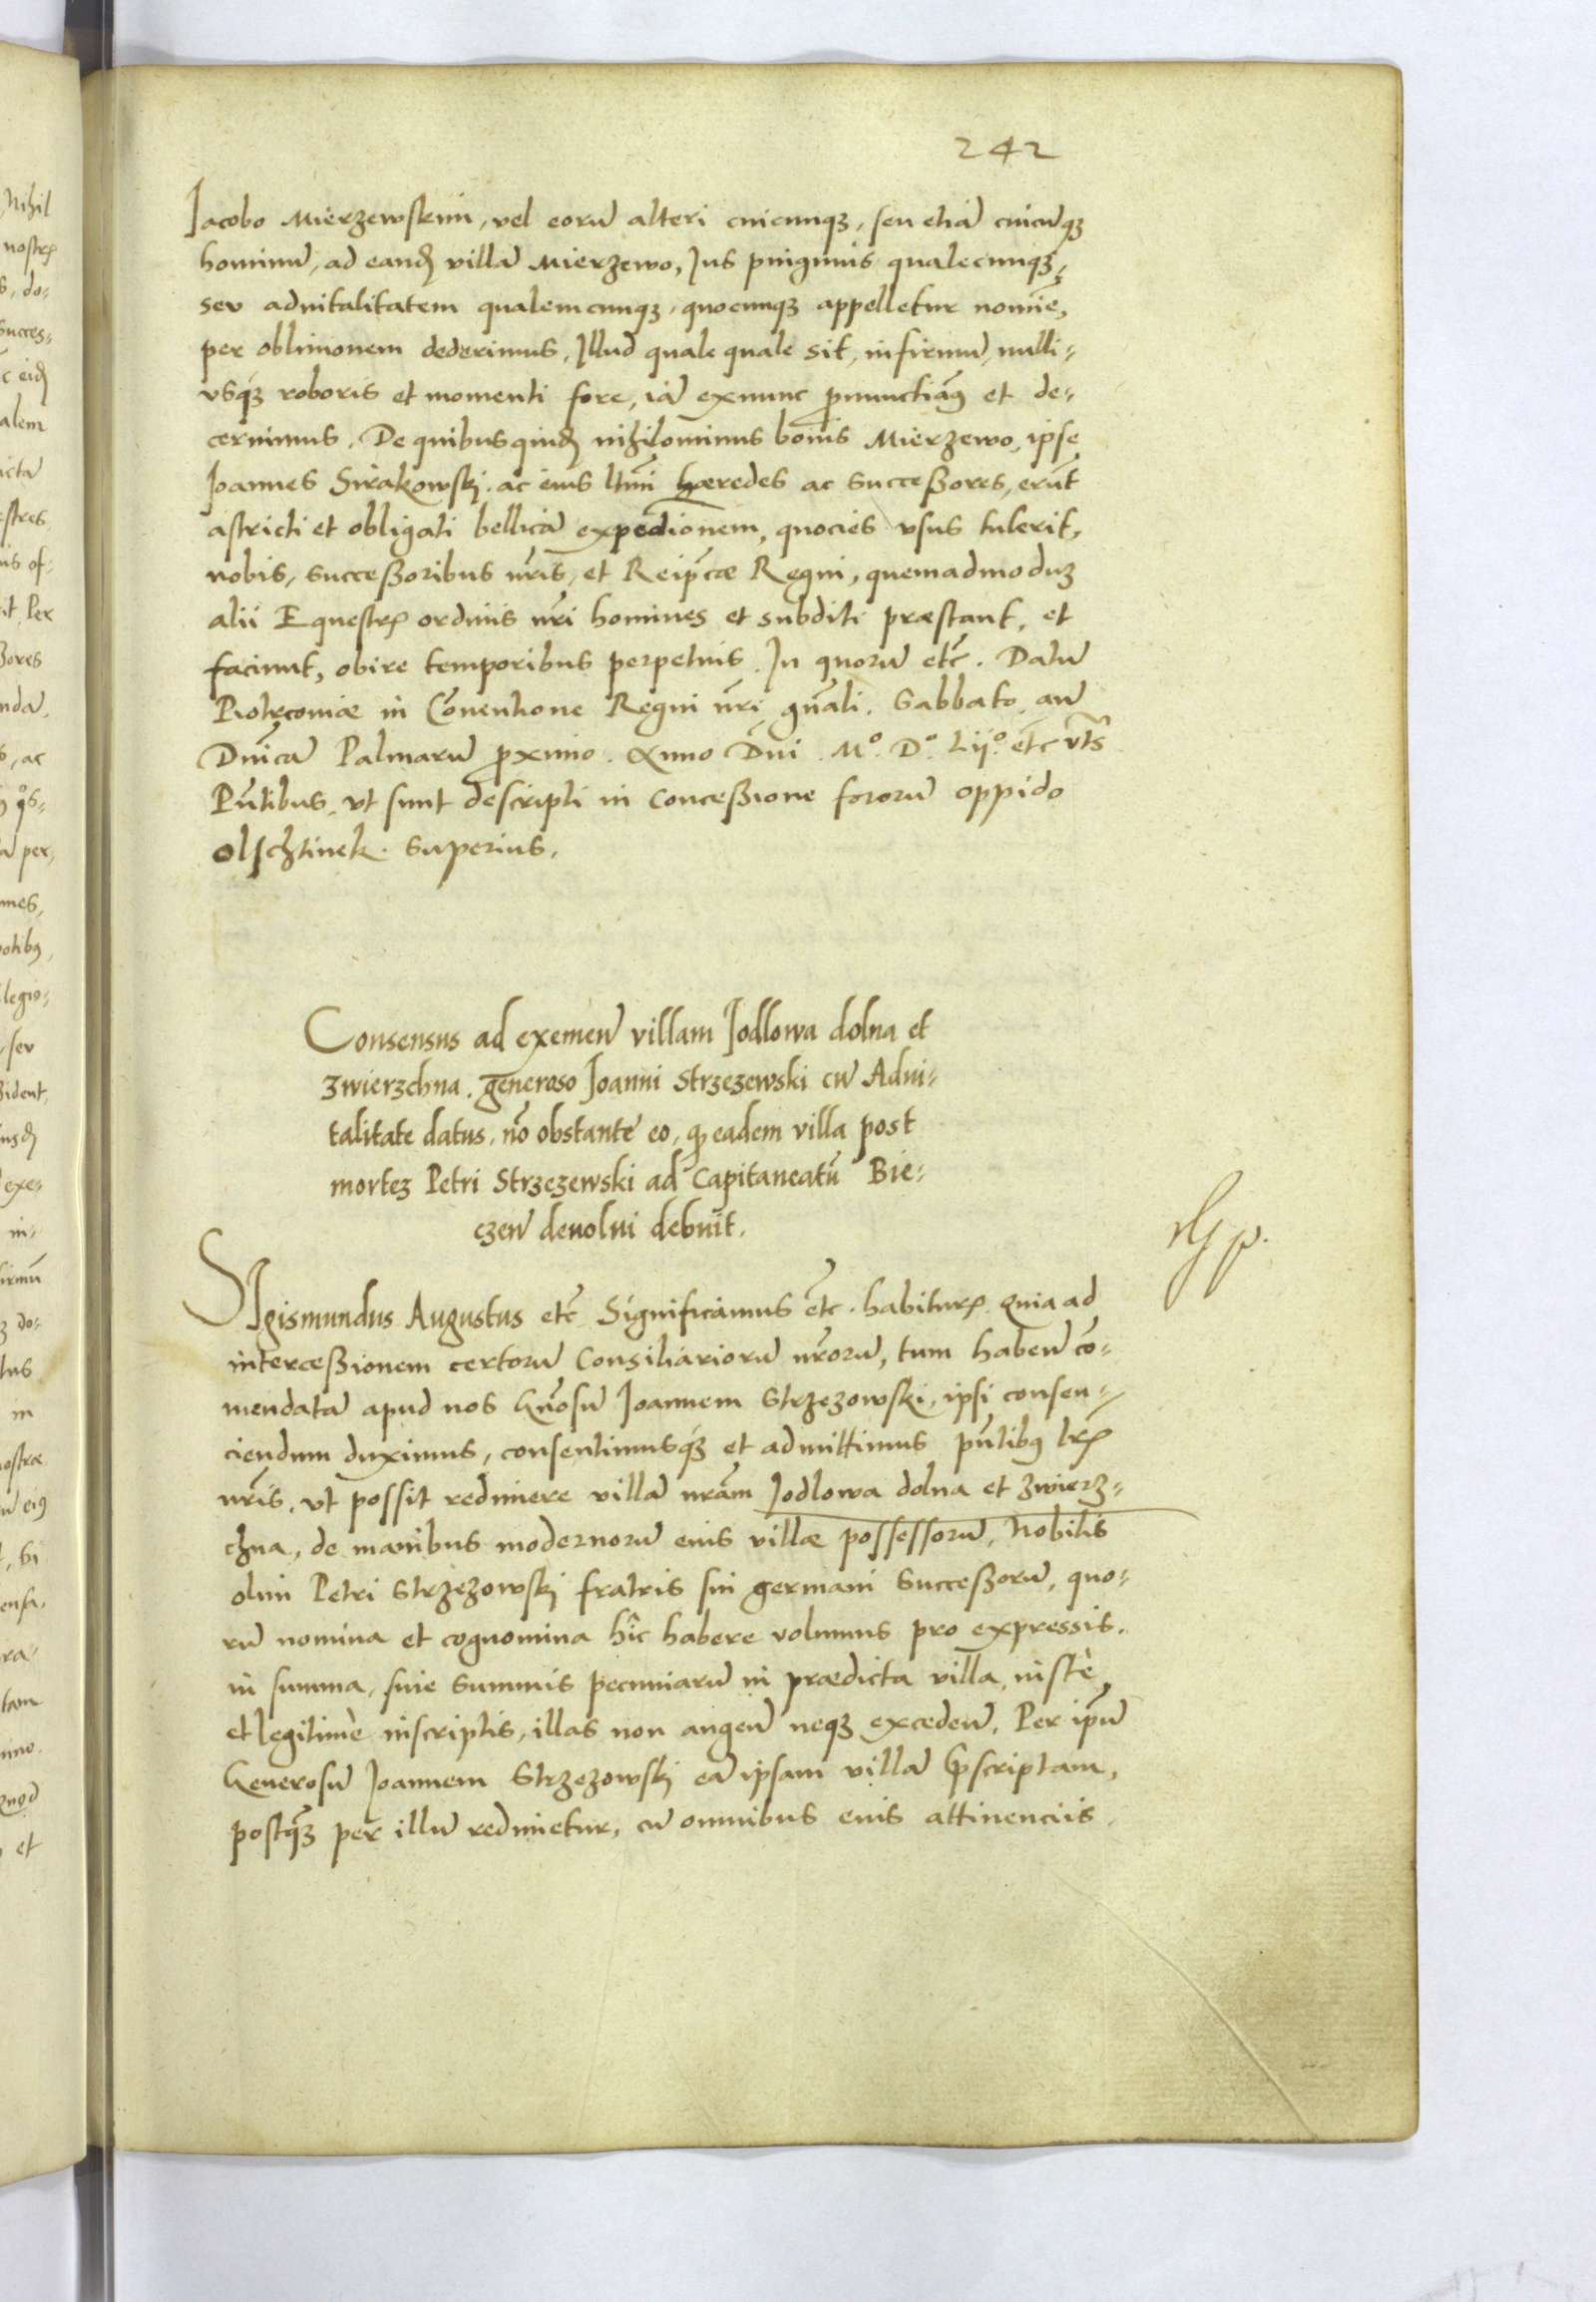 242
Jacobo Mierzewskim, vel eorū alteri cuicunqȝ, seu etiā cuicūqȝ
hominū, ad eandē villā Mierzewo, Jus pinguius qualecunqȝ,
seu aduitalitatem qualemcunqȝ, quocunqȝ appelletur nomīe,
per obliuionem dederimus, Illud quale quale sit, infirmū, nulli-
usqȝ roboris et momenti fore, iā exnunc pronunctiam9 et de-
cernimus. De quibusquidē nihilominus bonis Mierzewo, ipse
Joannes Sirakowski, ac eius ltimi hæredes ac Successores, erūt
astricti et obligati bellicā expedionem, quocies usus tulerit,
nobis, Successoribus nr̄is, et Reip̄cæ Regni, quemadmoduȝ
alii Equestrꝭ ordinis nr̄i homines et subditi præstant, et
faciunt, obire temporibus perpetuis. In quorū etc̄. Datū
Piotrcouiæ in Conuentione Regni nr̄i gn̄ali. Sabbato, an̄
Dn̄icā Palmarū proximo. Anno Dn̄i. M°. D°. Lij°. etc vts
Pn̄tibus, vt sunt descripti in concessione fororū oppido
Olschtinek. Superius.
Consensus ad exemen̄ villam Jodlowa dolna et
zwierzchna. generoso Joanni Strzezewski cū Adui-
talitate datus, nō obstante eo, qꝫ eadem villa post
morteȝ Petri Strzezewski ad Capitaneatū Bie-
czen̄ deuolui debuit.
Sigismundus Augustus etc̄ Significamus etc̄. habiturꝭ quia ad
intercessionem certorū Consiliariorū nr̄orū, tum haben̄ cō-
mendatā apud nos Gn̄osū Joannem Strzezowski, ipsi consen-
ciendum duximus, consentimusqȝ et admittimus pn̄tib9 lrꝭ
nr̄is, vt possit redimere villā nr̄am Jodlowa dolna et zwierz-
chna, de manibus modernorū eius villæ possessorū, Nobilis
olim Petri Strzezowski fratris sui germani Successorū, quo-
rū nomina et cognomina hîc habere volumus pro expressis.
in summa, siue summis pecuniarū in prædicta villa, iustè
et legitimè inscriptis, illas non augen̄ neqȝ exceden̄. Per ip̄m
Generosū Joannem Strzezowski eā ipsam villā p̄scriptam,
postqȝ per illū redimetur, cū omnibus eius attinenciis